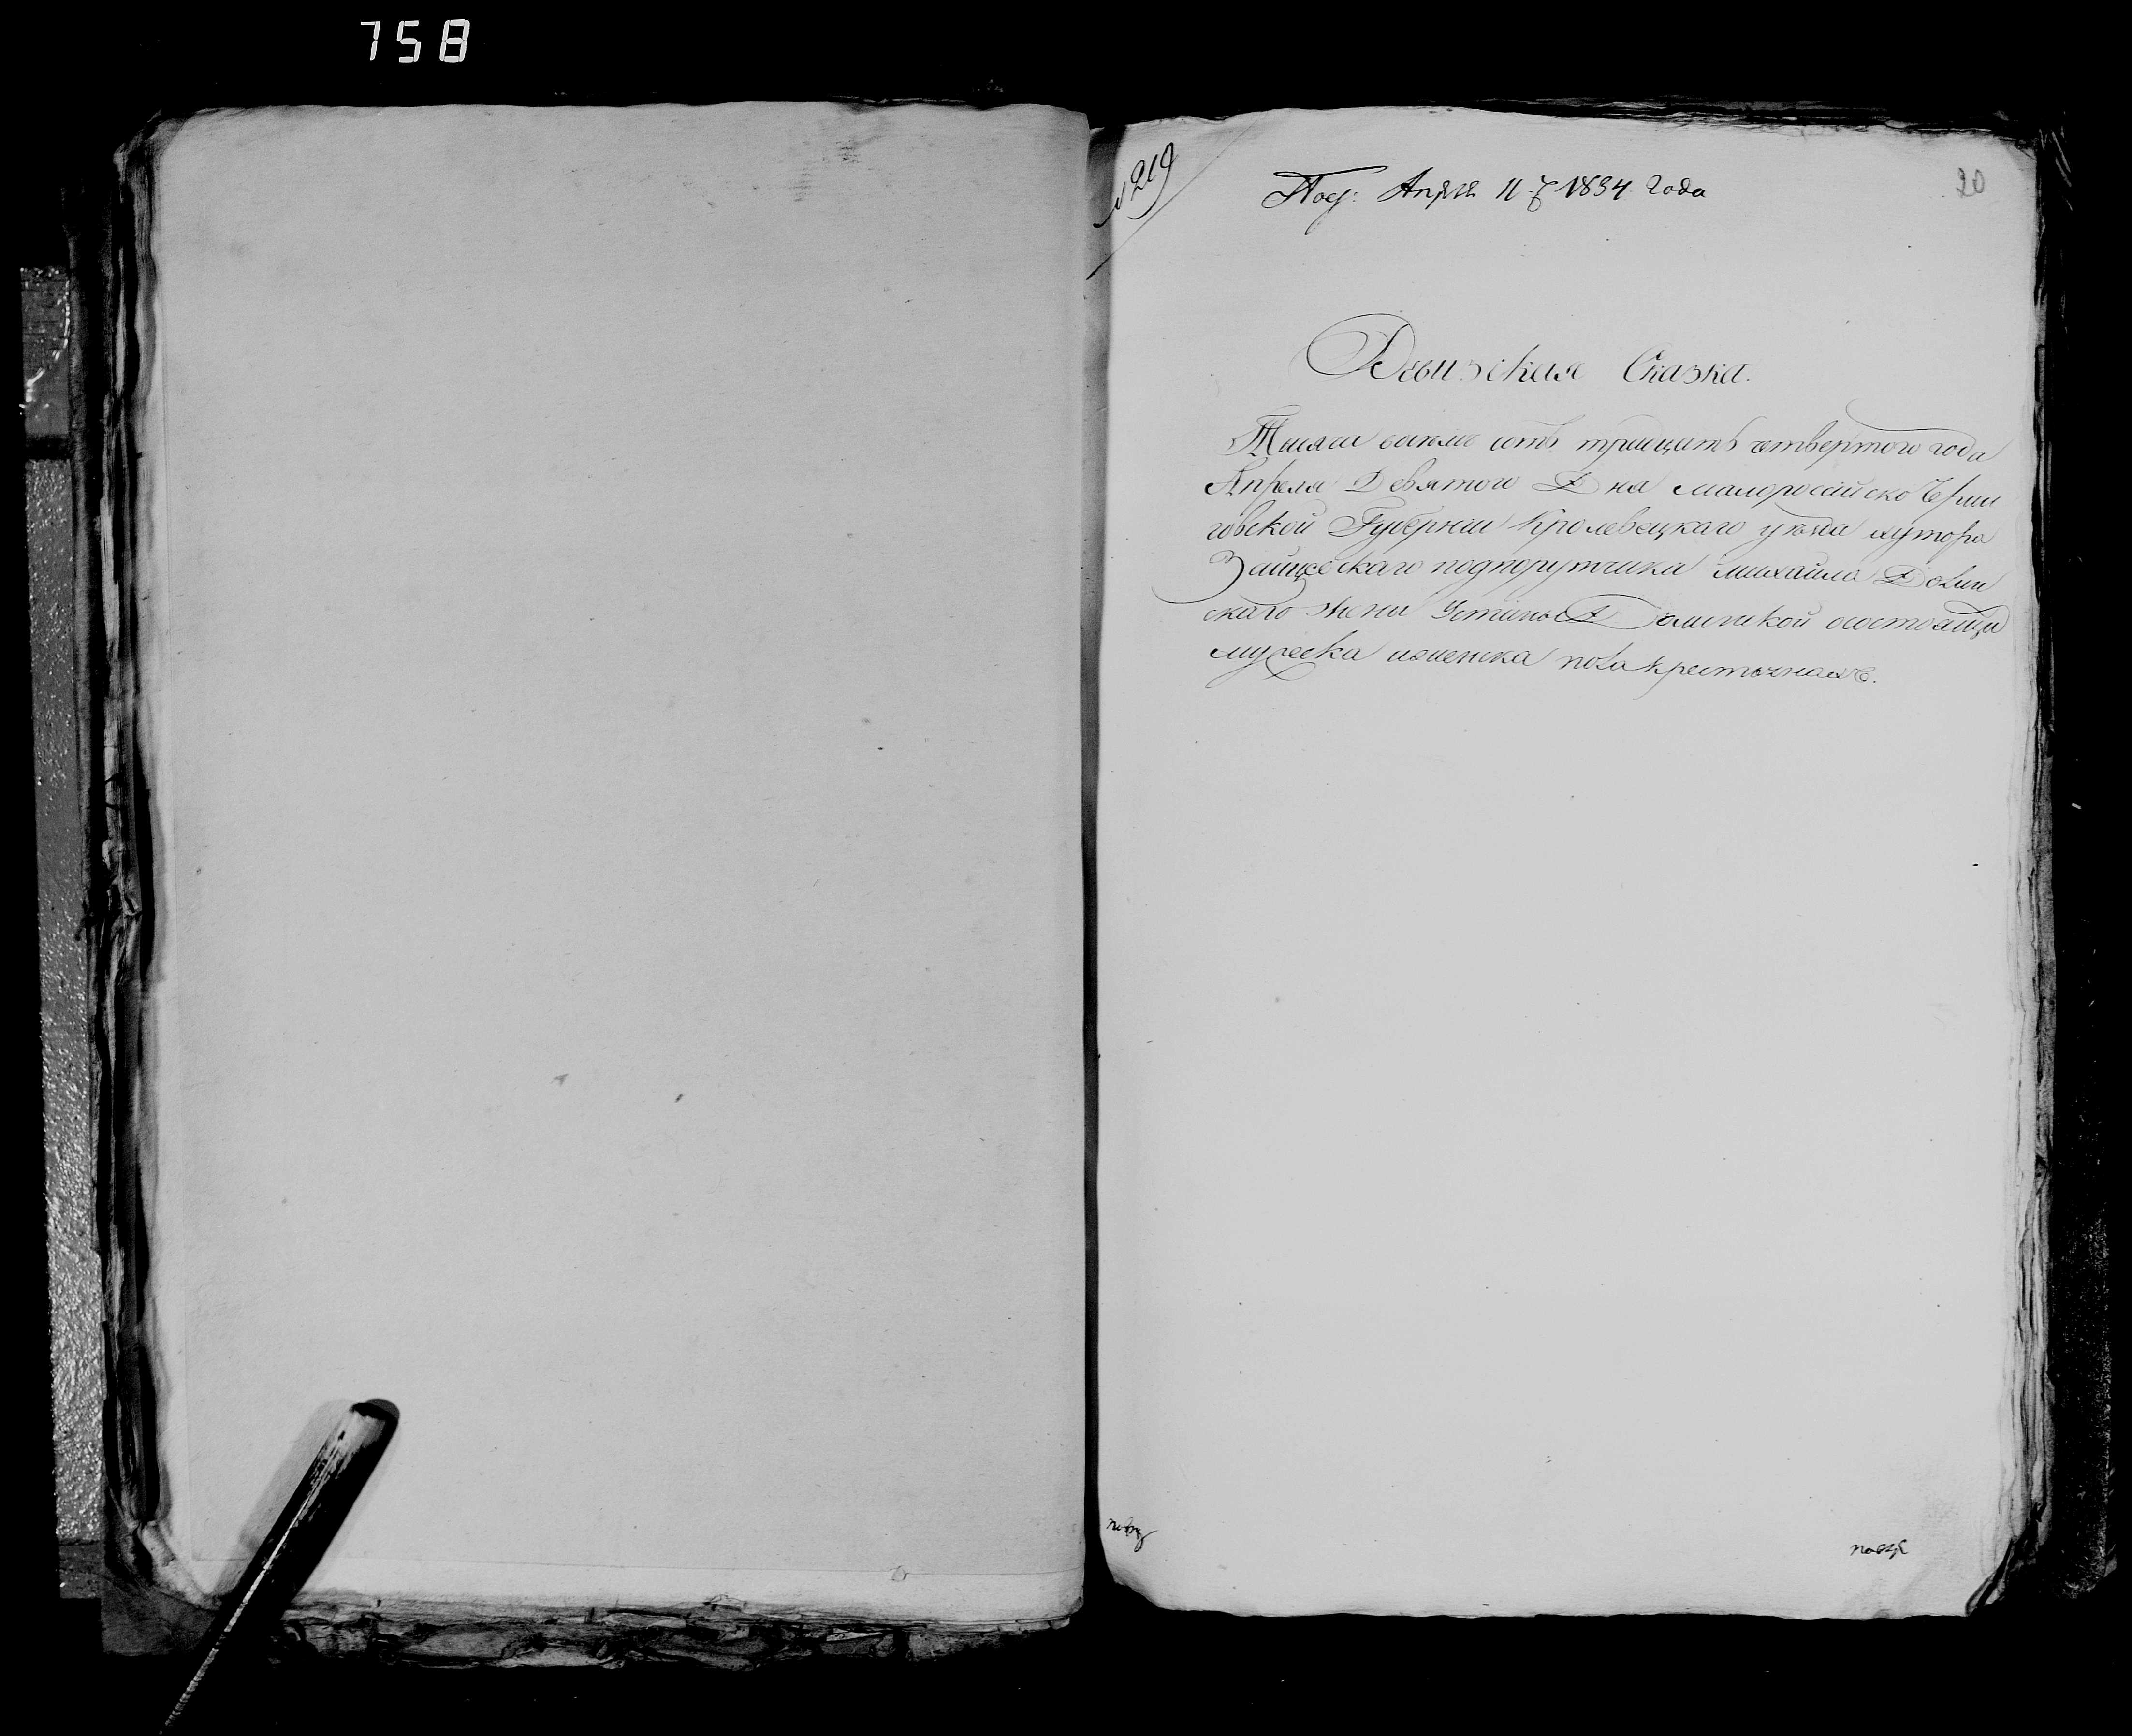 758
№ 219
Пол: Апреля 11 д 1834 года
20
Ревизская Сказка.
Тысяча восемь сотъ тридцать четвертого года
Апреля Девятого Дня малоросийско Черни
говской Губернии Кролевецкого уезда хутора
подпорутчика михайла Долин
скаго жени Устины Долинской осостоящи
мужеска иженска пола крестьянахъ.